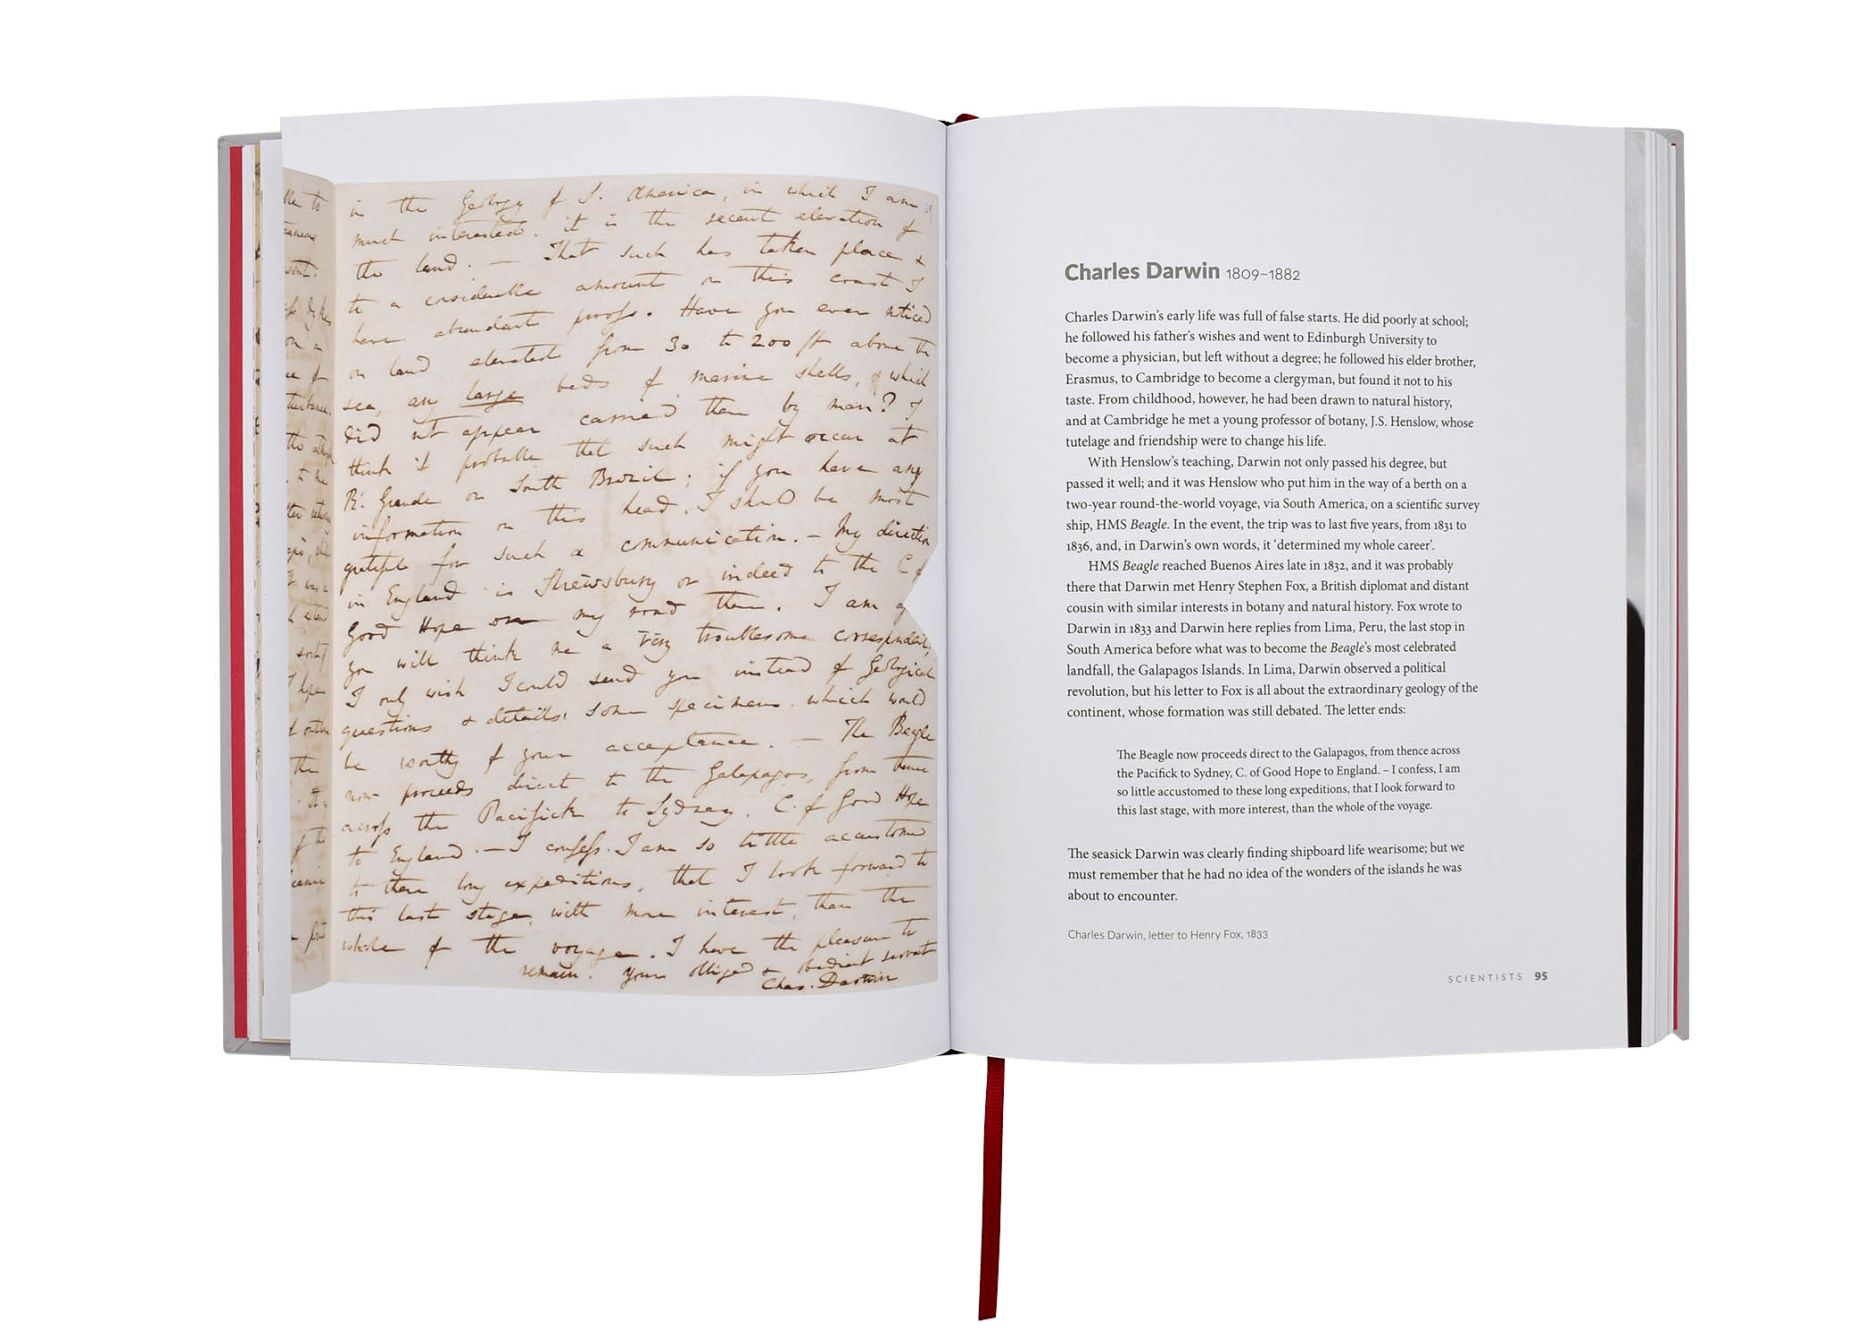 in the Geology of S. America, in which I am
much interested. it is the recent elevation of
the land. — That such has taken place &
to a considerable amount on this coast I
have abundant proofs. Have you ever noticed
on land elevated from 30 to 200 ft above the
sea, any large beds of marine shells, which
did not appear carried there by man? I
think it probable that such might occur at
R. Grande or South Brazil; if you have any
information on this head, I shall be most
grateful for such a communication. — My direction
in England is Shrewsbury or indeed to the C of
Good Hope on my road there. I am
you will think me a very troublesome correspondent,
I only wish I could send you instead of Geological
questions & details, some specimens which would
be worthy of your acceptance. — The Beagle
now proceeds direct to the Galapagos, from thence
across the Pacifick to Sydney, C. of Good Hope
to England. — I confess, I am so little accustomed
to these long expeditions, that I look forward to
this last stage, with more interest, than the
whole of the voyage. I have the pleasure to
remain. Your obliged & obedient servant
Chas. Darwin
Charles Darwin 1809–1882
Charles Darwin's early life was full of false starts. He did poorly at school;
he followed his father's wishes and went to Edinburgh University to
become a physician, but left without a degree; he followed his elder brother,
Erasmus, to Cambridge to become a clergyman, but found it not to his
taste. From childhood, however, he had been drawn to natural history,
and at Cambridge he met a young professor of botany, J.S. Henslow, whose
tutelage and friendship were to change his life.
With Henslow's teaching, Darwin not only passed his degree, but
passed it well; and it was Henslow who put him in the way of a berth on a
two-year round-the-world voyage, via South America, on a scientific survey
ship, HMS Beagle. In the event, the trip was to last five years, from 1831 to
1836, and, in Darwin's own words, it 'determined my whole career'.
HMS Beagle reached Buenos Aires late in 1832, and it was probably
there that Darwin met Henry Stephen Fox, a British diplomat and distant
cousin with similar interests in botany and natural history. Fox wrote to
Darwin in 1833 and Darwin here replies from Lima, Peru, the last stop in
South America before what was to become the Beagle's most celebrated
landfall, the Galapagos Islands. In Lima, Darwin observed a political
revolution, but his letter to Fox is all about the extraordinary geology of the
continent, whose formation was still debated. The letter ends:
The Beagle now proceeds direct to the Galapagos, from thence across
the Pacifick to Sydney, C. of Good Hope to England. – I confess, I am
so little accustomed to these long expeditions, that I look forward to
this last stage, with more interest, than the whole of the voyage.
The seasick Darwin was clearly finding shipboard life wearisome; but we
must remember that he had no idea of the wonders of the islands he was
about to encounter.
Charles Darwin, letter to Henry Fox, 1833
SCIENTISTS 95